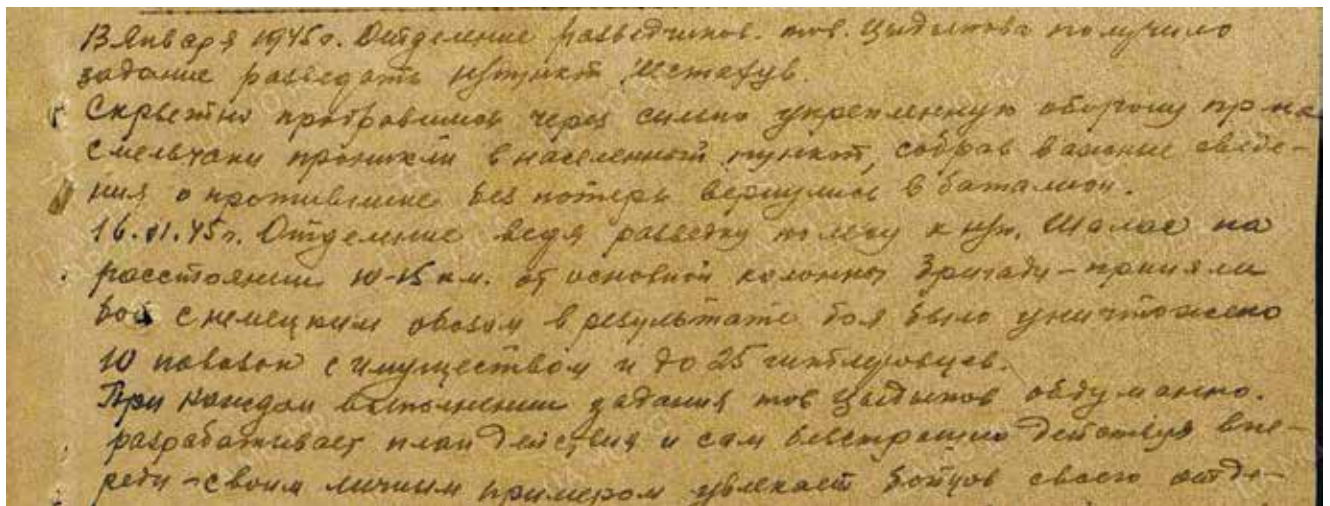 13 Января 1945г. Отделение разведчиков. тов. Цыдыпова получило
задание разведать н/пункт
Скрытно пробравшись через сильно укрепленную оборону пр-ка
смельчаки проникли в населенный пункт, собрав важные сведе-
ния о противнике без потерь вернулись в баталион.
16.01.45г. Отделение ведя разведку к н/п. Шалас на
расстоянии 10-15 км. от основной колонны бригады - приняли
бой с немецким обозом в результате боя было уничтожено
10 повозок с имуществом и до 25 гитлеровцев.
При каждом выполнении задания тов Цыдыпов обдуманно.
разрабатывает план действия и сам бесстрашно действуя впе-
реди - своим личным примером увлекает бойцов своего отде-